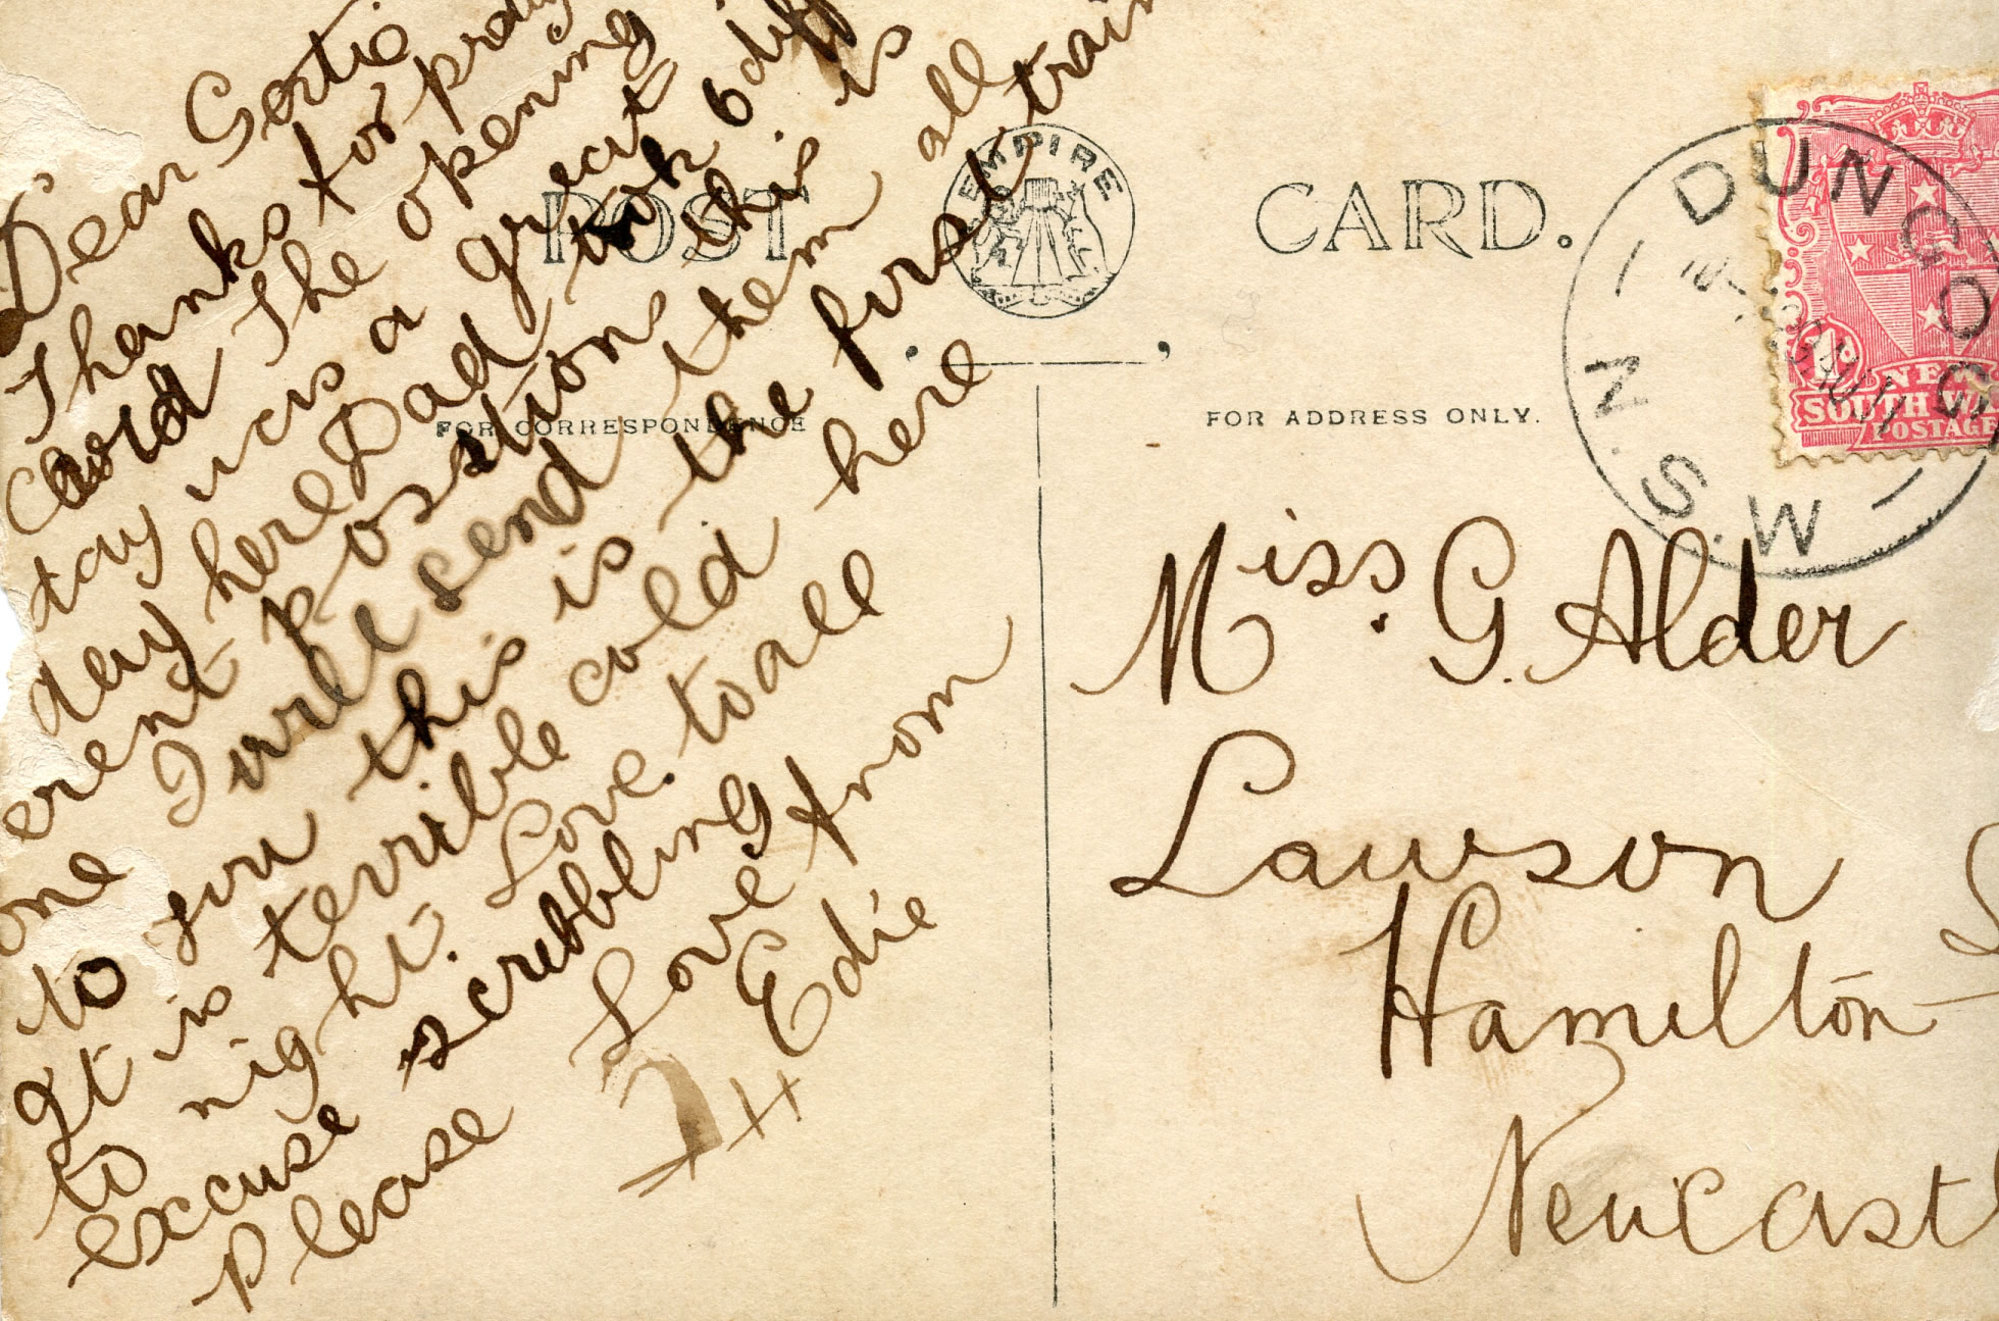 Dear Gertie
Thanks for
Card The opening
day was a great
day here Dad took 6 diff
erent postions this is
one I will send them all
to you this is the first train
It is terrible cold here
to night. Love to all
excuse scribbling
please Love from
Edie
POST CARD.
EMPIRE
FOR CORRESPONDENCE
FOR ADDRESS ONLY.
DUNGOG
N.S.W
1d
NEW
SOUTH WA
POSTAGE
Miss. G. Alder
Lawson
Hamilton
Newcastl